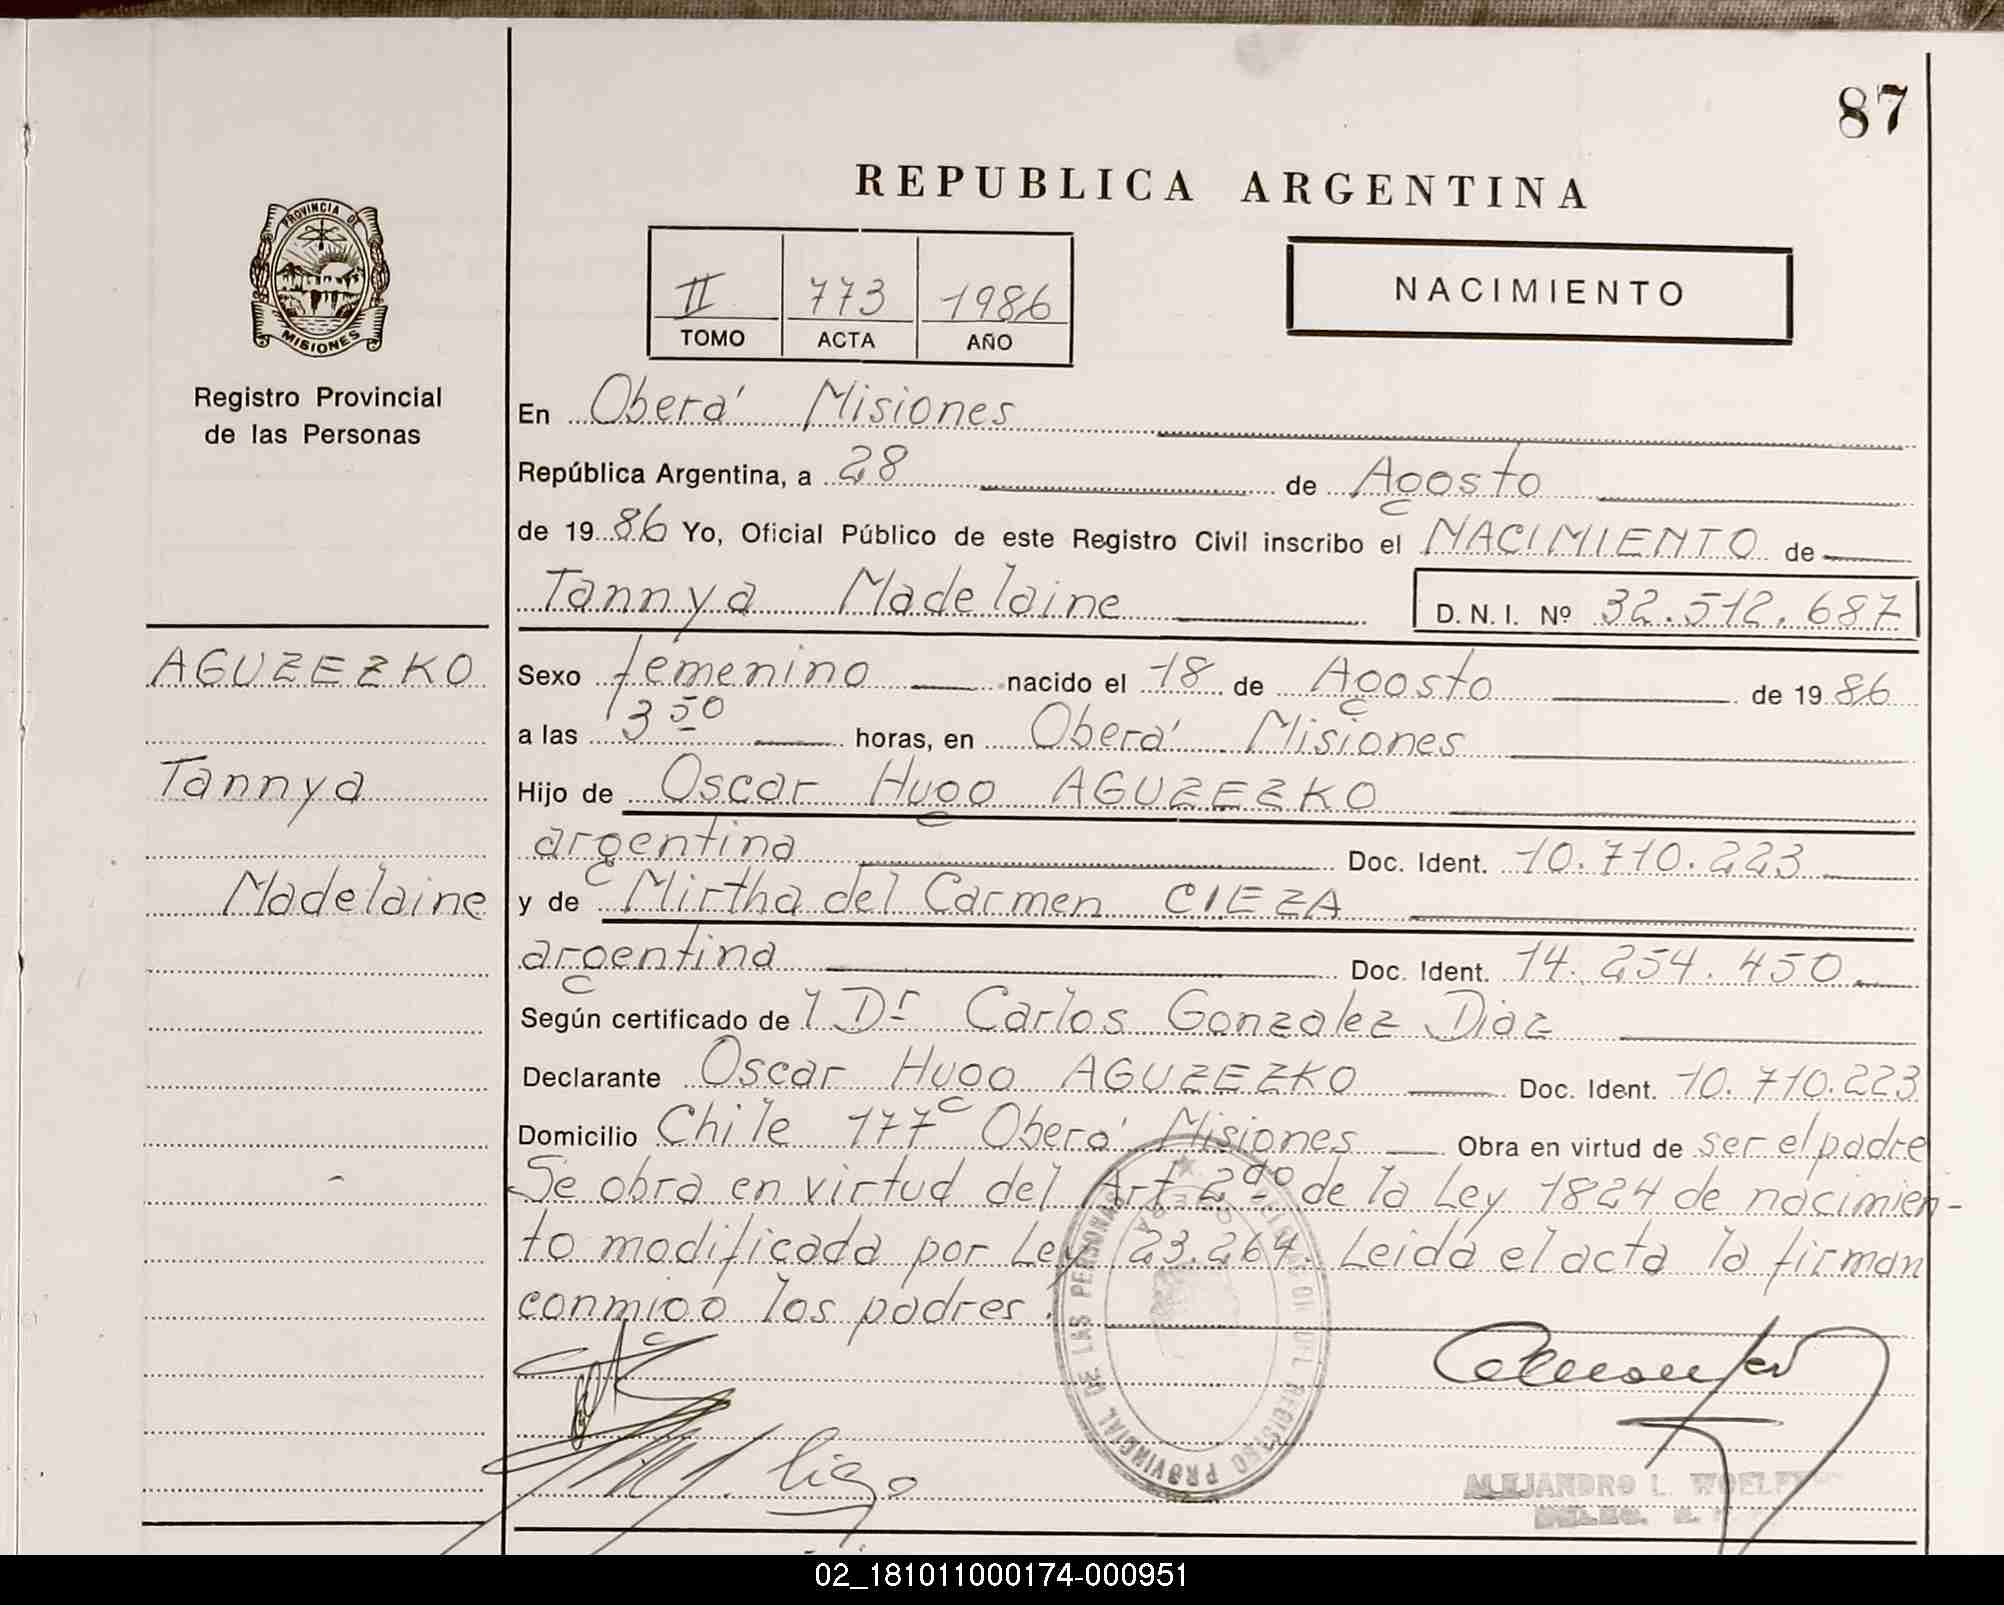 87
REPUBLICA ARGENTINA
PROVINCIA DE
MISIONES
Registro Provincial
de las Personas
II 773 1986
TOMO ACTA AÑO
NACIMIENTO
En Oberá Misiones
República Argentina, a 28 de Agosto
de 1986 Yo, Oficial Público de este Registro Civil inscribo el NACIMIENTO de
Tannya Madelaine D. N. I. Nº 32.512.687
AGUZEZKO
Tannya
Madelaine
Sexo femenino nacido el 18 de Agosto de 1986
a las 3 50 horas, en Oberá Misiones
Hijo de Oscar Hugo AGUZEZKO
argentina Doc. Ident. 10.710.223
y de Mirtha del Carmen CIEZA
argentina Doc. Ident. 14.254.450
Según certificado del Dr Carlos Gonzalez Diaz
Declarante Oscar Hugo AGUZEZKO Doc. Ident. 10.710.223
Domicilio Chile 177 Oberá Misiones Obra en virtud de ser el padre
Se obra en virtud del Art 2do de la Ley 1824 de nacimien-
to modificada por Ley 23.264. Leida el acta la firman
conmigo los padres.
REGISTRO PROVINCIAL DE LAS PERSONAS
ALEJANDRO L.
02_181011000174-000951